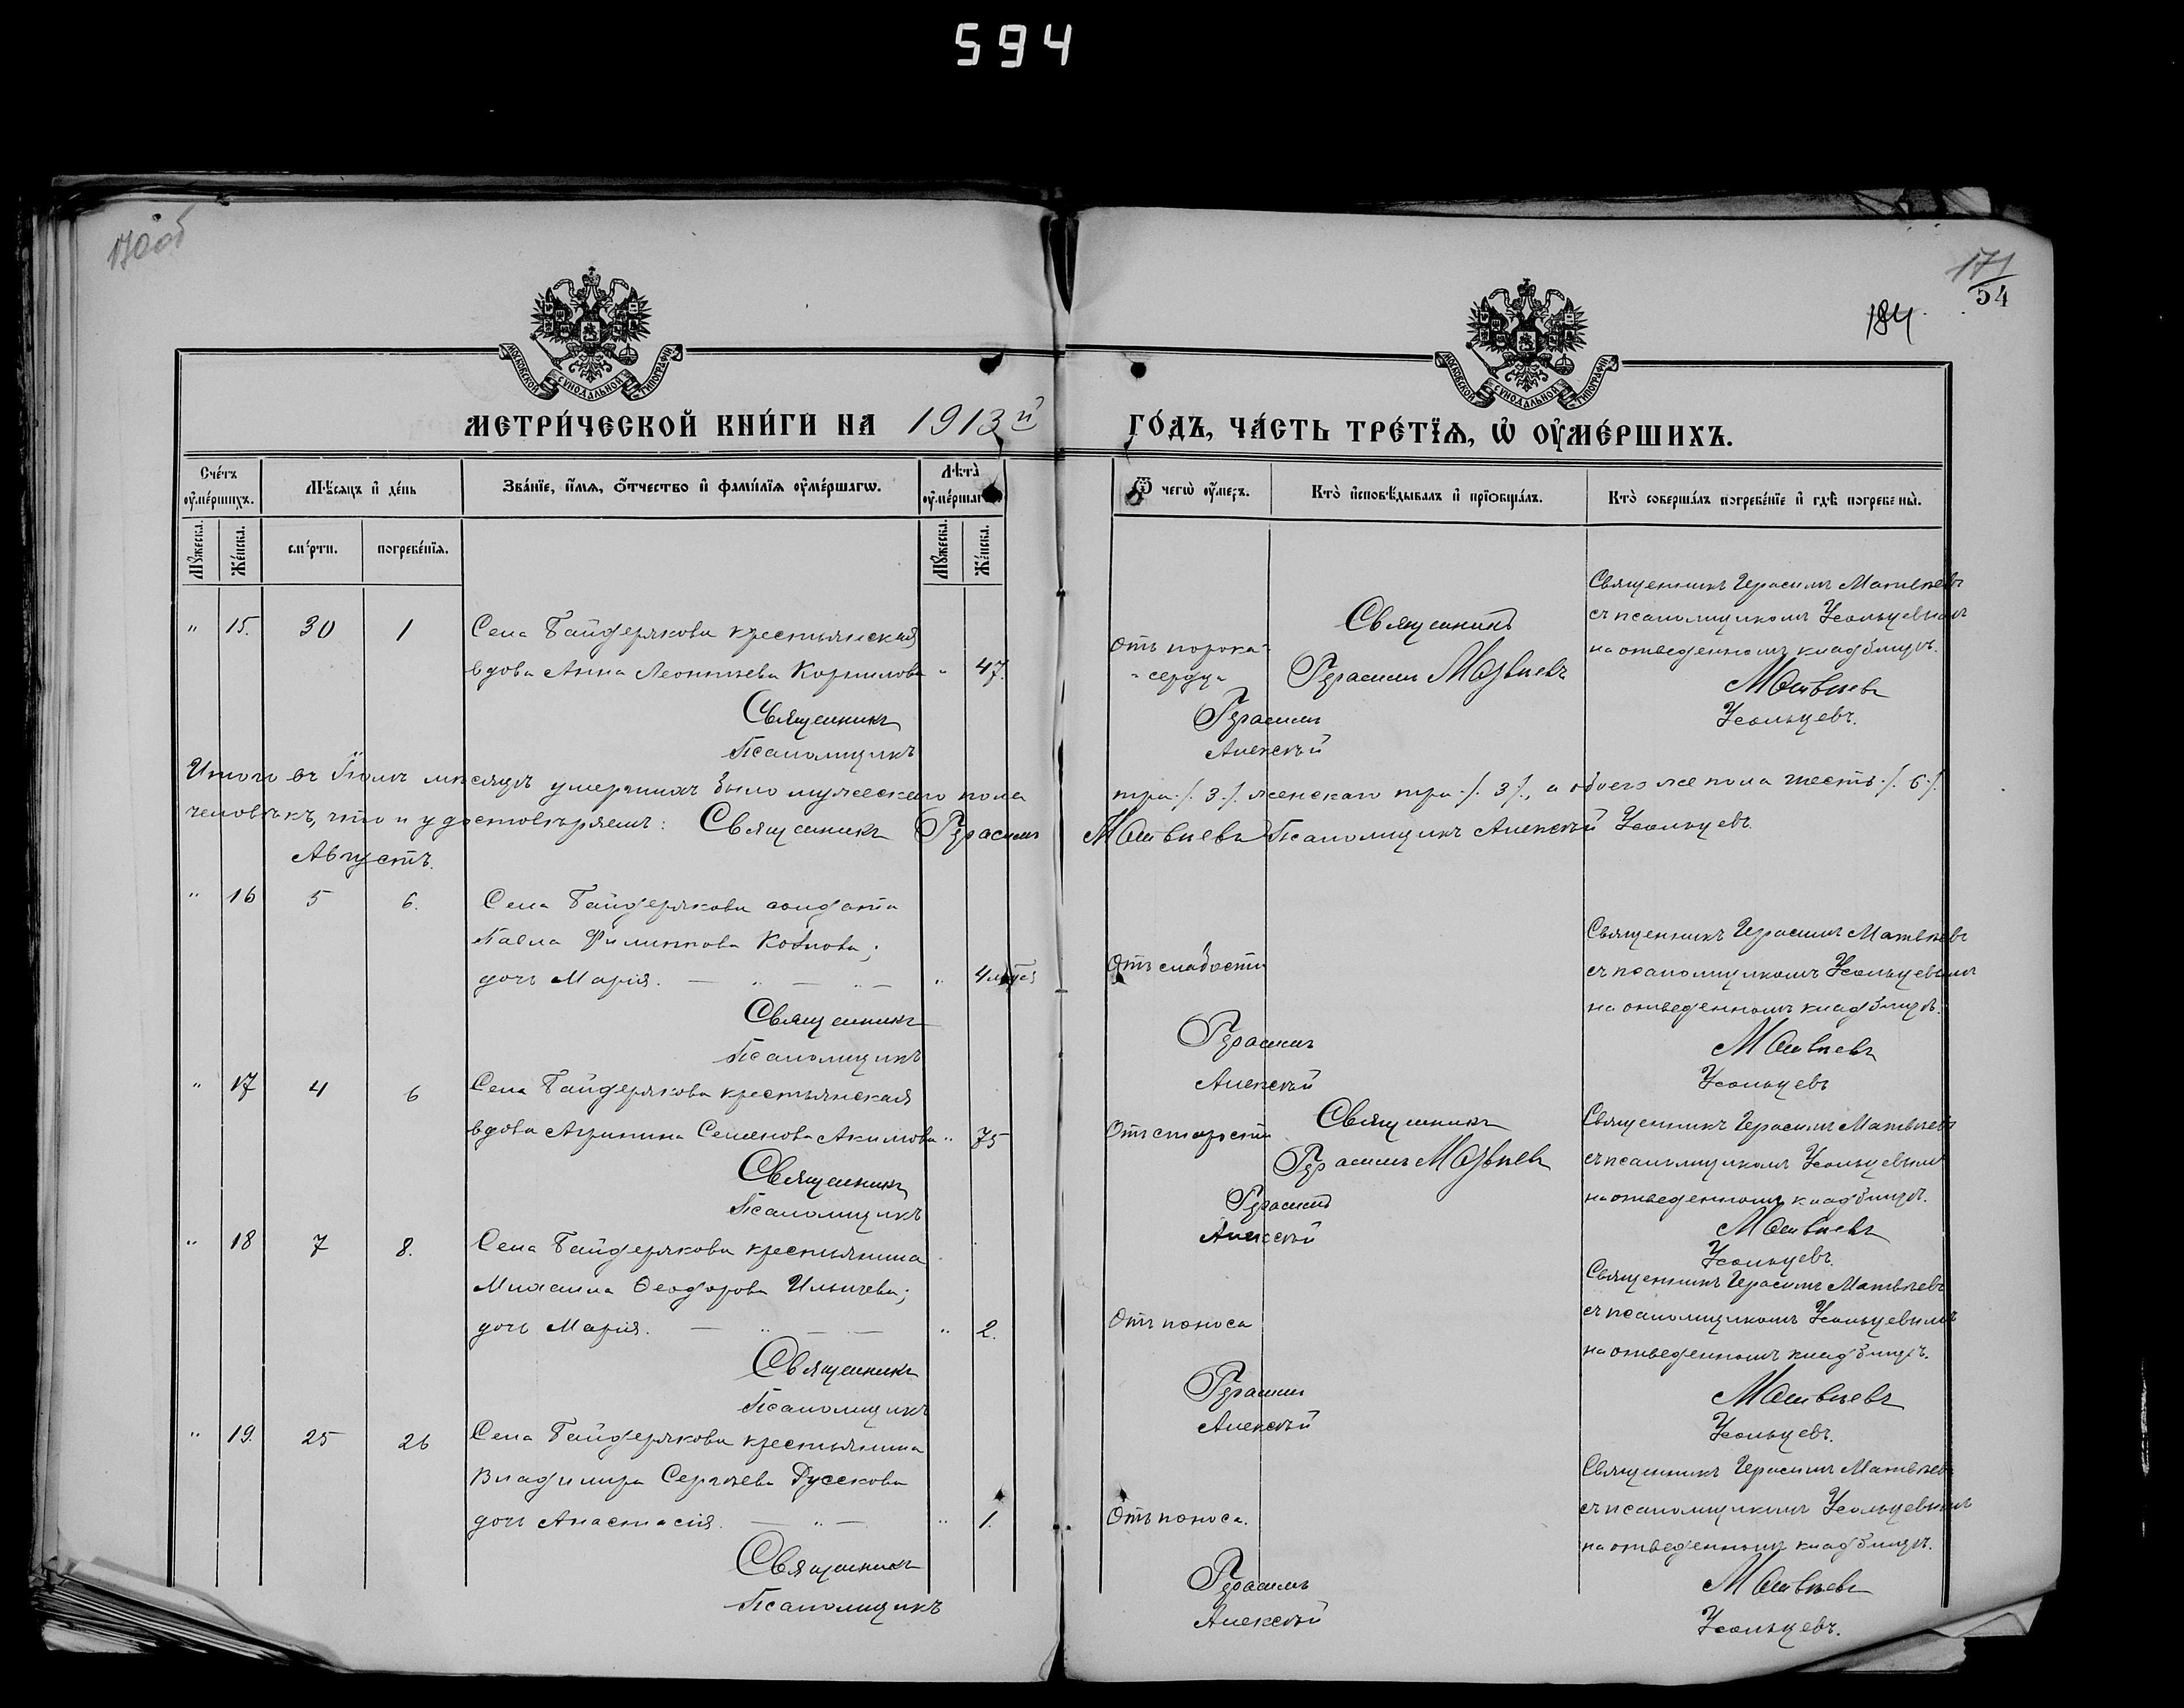 594
170 об
171
54
184.
МОСКОВСКОЙ СУНОДАЛЬНОЙ ТИПОГРАФІИ
МОСКОВСКОЙ СУНОДАЛЬНОЙ ТИПОГРАФІИ
МЕТРИ́ЧЕСКОЙ КНИ́ГИ НА 1913й ГО́ДЪ, ЧА́СТЬ ТРЕ́ТЇѦ, Ѡ҆ ОУ҆МЕ́РШИХЪ.
Сче́тъ оу҆ме́ршихъ.
Мѣ́сяцъ и҆ де́нь
Зва́нїе, и҆́мѧ, ѻ҆́тчество и҆ фами́лїѧ оу҆ме́ршагѡ.
Лѣ́та̀ оу҆ме́ршагѡ.
Ѿ чегѡ̀ оу҆́меръ.
Кто̀ и҆сповѣ́дывалъ и҆ прїѻбща́лъ.
Кто̀ соверша́лъ погребе́нїе и҆ гдѣ̀ погребены̀.
Мꙋ́жеска.
Же́нска.
сме́рти.
погребе́нїѧ.
Мꙋ́жеска.
Же́нска.
" 15. 30 1 Села Байдерякова крестьянская
вдова Анна Леонтьева Корнилова " 47.
Священникъ
Псаломщикъ
Отъ порока
сердца
Священникъ
Герасимъ Матвѣевъ
Герасимъ
Алексѣй
Священникъ Герасимъ Матвѣевъ
съ псаломщикомъ Усольцевымъ
на отведенномъ кладбищѣ.
Матвѣевъ
Усольцевъ.
Итого въ Іюлѣ мѣсяцѣ умершихъ было мужескаго пола три ./. 3 ./. женскаго три ./. 3 /., а обоего же пола шесть ./. 6 ./.
человѣкъ, что и удостовѣряемъ: Священникъ Герасимъ Матвѣевъ Псаломщикъ Алексѣй Усольцевъ.
Августъ.
" 16 5 6. Села Байдерякова солдата
Павла Филиппова Козлова;
дочь Марія. " 4 мѣся
Священникъ
Псаломщикъ
Отъ слабости
Герасимъ
Алексѣй
Священникъ Герасимъ Матвѣевъ
съ псаломщикомъ Усольцевымъ
на отведенномъ кладбищѣ.
Матвѣевъ
Усольцевъ
" 17 4 6 Села Байдерякова крестьянская
вдова Агрипина Семенова Акимова " 75
Священникъ
Псаломщикъ
Отъ старости
Священникъ
Герасимъ Матвѣевъ
Герасимъ
Алексѣй
Священникъ Герасимъ Матвѣевъ
съ псаломщикомъ Усольцевымъ
на отведенномъ кладбищѣ.
Матвѣевъ
Усольцевъ.
" 18 7 8. Села Байдерякова крестьянина
Михаила Ѳеодорова Ильичева;
дочь Марія. " 2.
Священникъ
Псаломщикъ
Отъ поноса
Герасимъ
Алексѣй
Священникъ Герасимъ Матвѣевъ
съ псаломщикомъ Усольцевымъ
на отведенномъ кладбищѣ.
Матвѣевъ
Усольцевъ.
" 19. 25 26 Села Байдерякова крестьянина
Владимира Сергѣева Дускова
дочь Анастасія. " 1.
Священникъ
Псаломщикъ
Отъ поноса.
Герасимъ
Алексѣй
Священникъ Герасимъ Матвѣевъ
съ псаломщикомъ Усольцевымъ
на отведенномъ кладбищѣ.
Матвѣевъ
Усольцевъ.